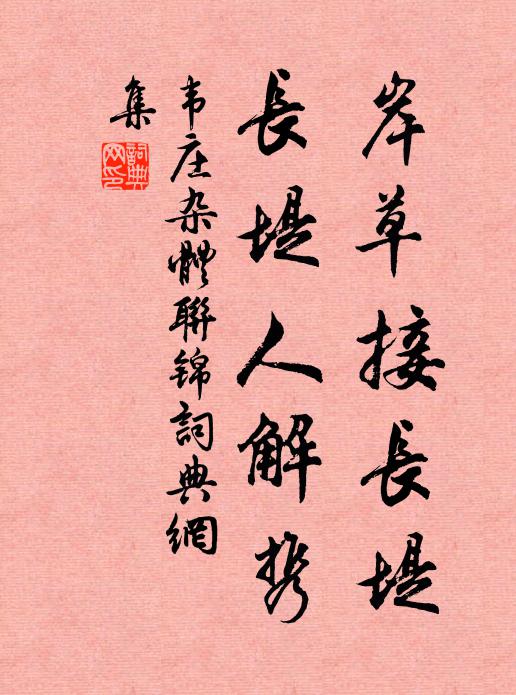 岸草接長堤
長堤人解携
韦庄杂體聯锦詞典網
集
詞典網印